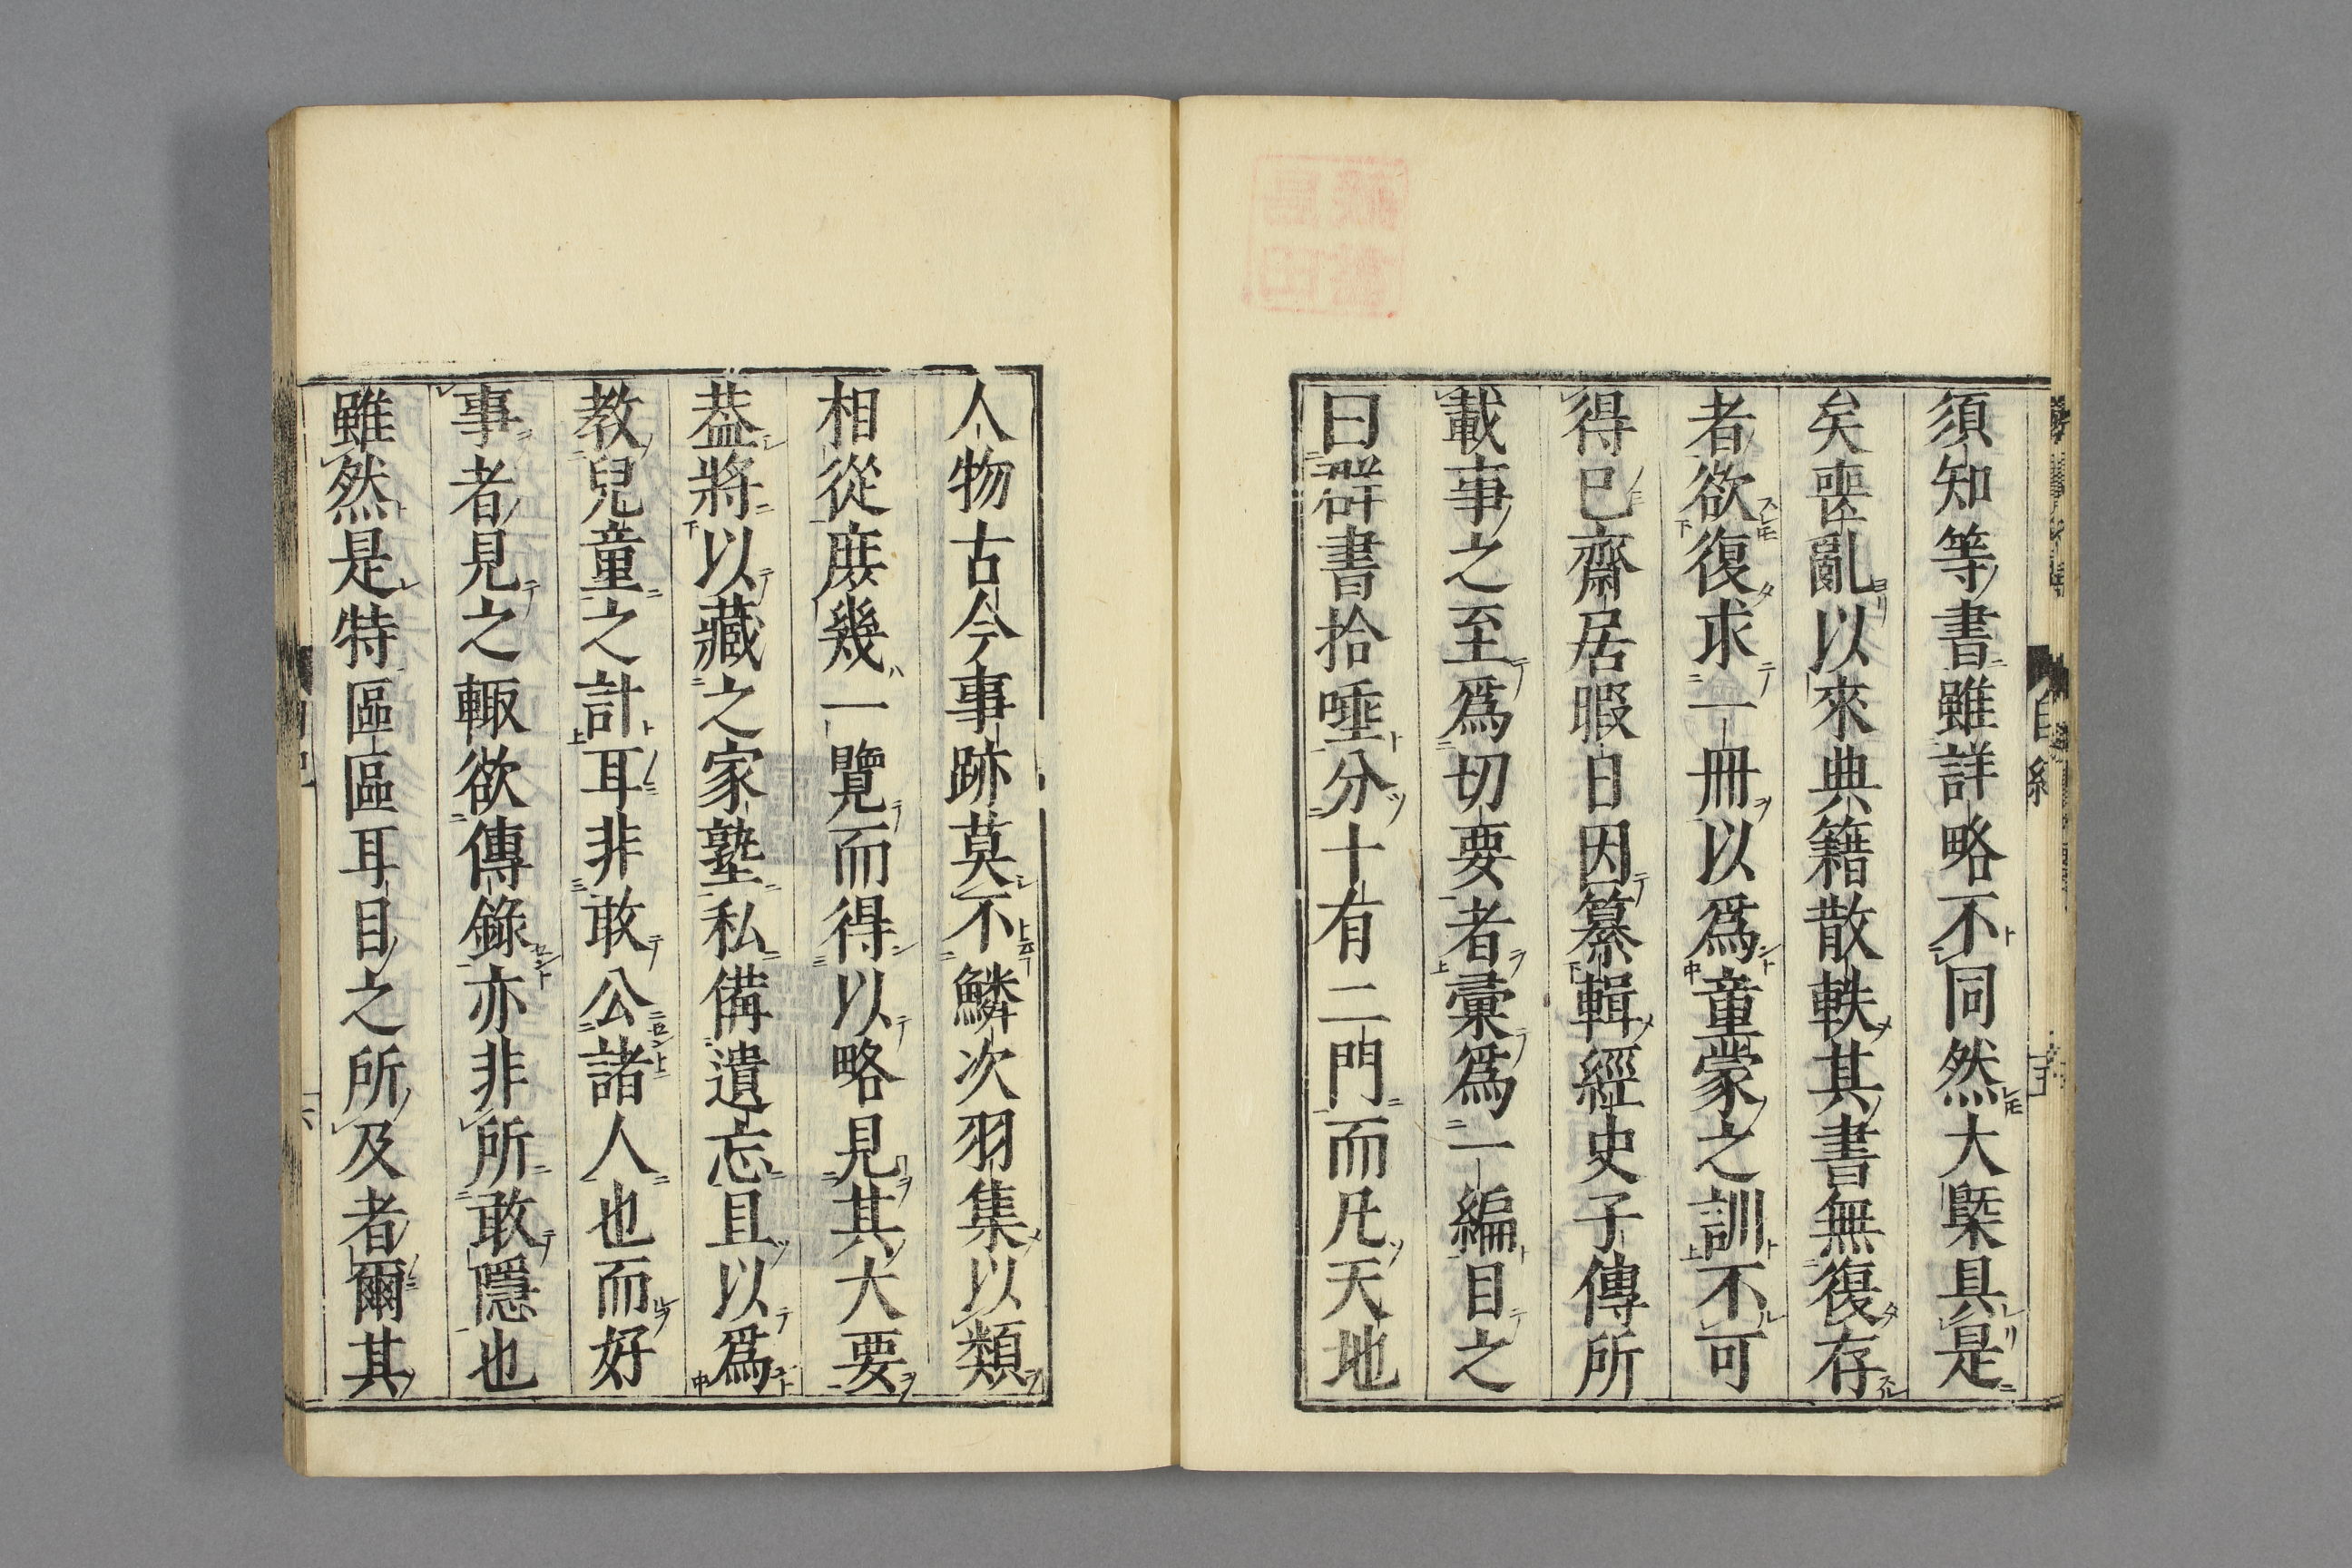 須知等書雖詳略不同然大槩具是
矣喪亂以來典籍散軼其書無復存
者欲復求一冊以爲童蒙之訓不可
得已齋居暇日因纂輯經史子傳所
載事之至爲切要者彙爲一編目之
曰群書拾唾分十有二門而凡天地
人物古今事跡莫不鱗次羽集以類
相從庶幾一覽而得以略見其大要
葢將以藏之家塾私備遺忘且以爲
教兒童之計耳非敢公諸人也而好
事者見之輙欲傳錄亦非所敢隱也
雖然是特區區耳目之所及者爾其